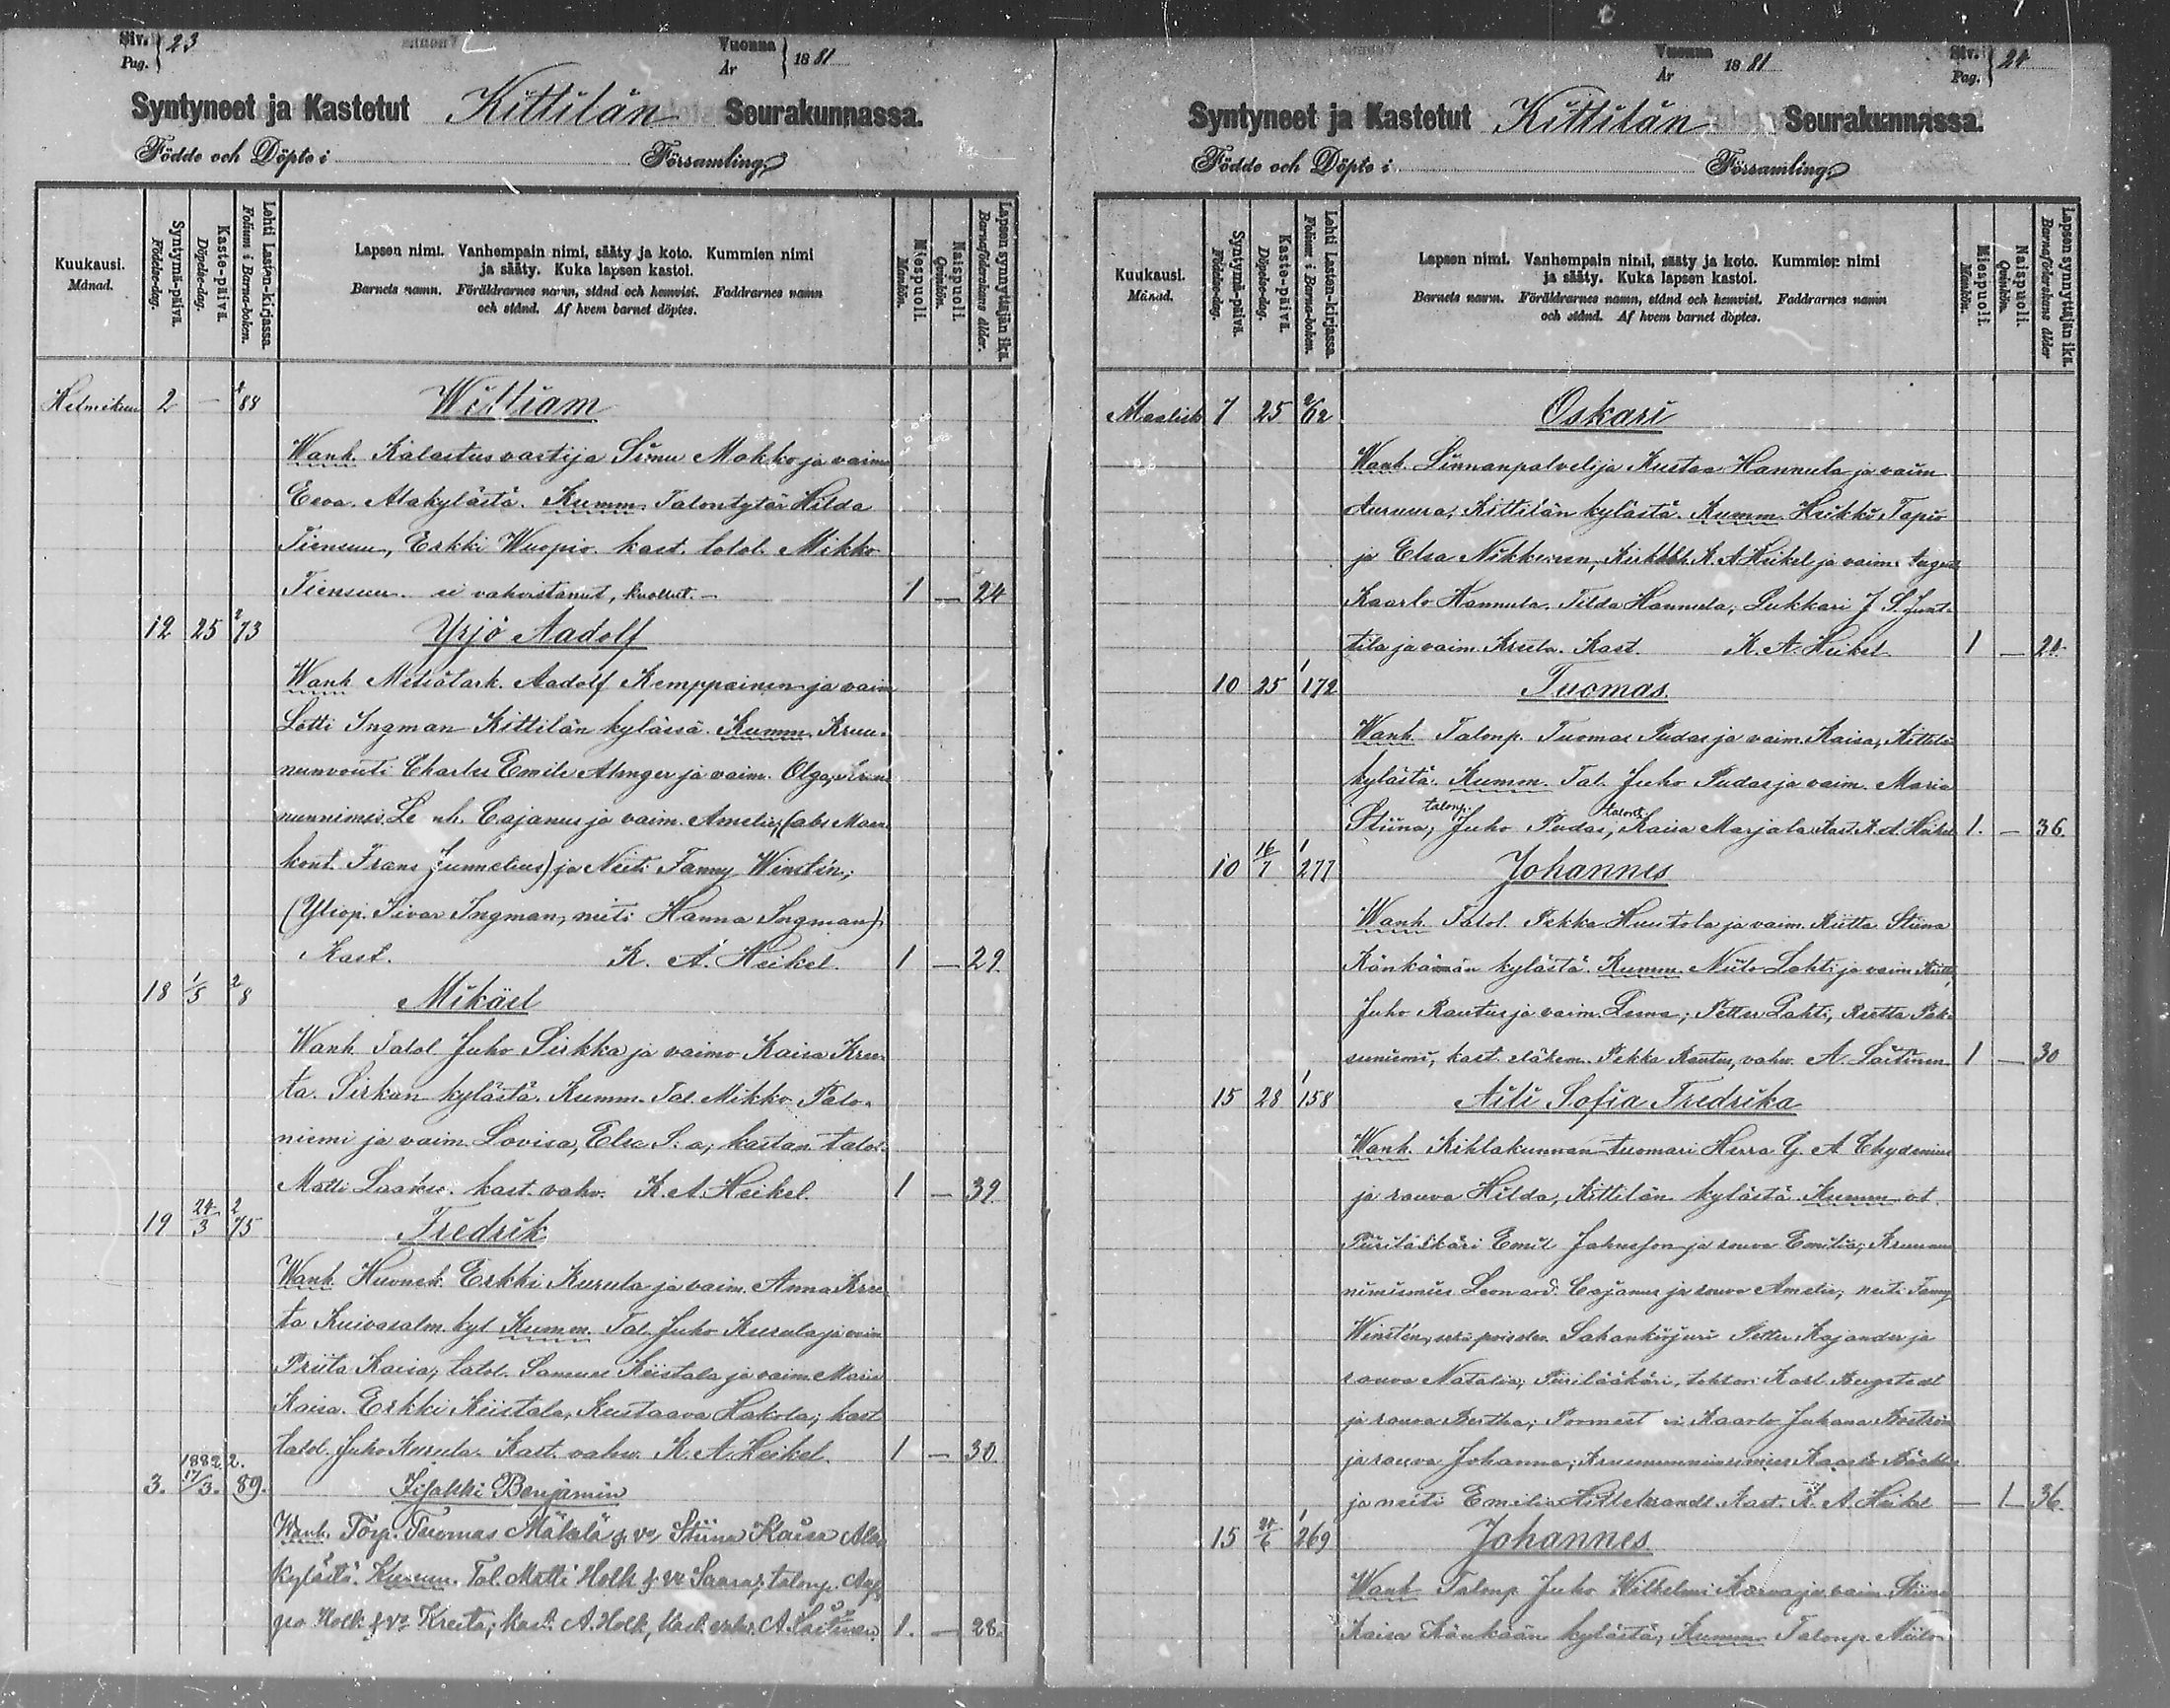 Siv. 23
Pag.
Vuonna 1881
År
Syntyneet ja Kastetut Kittilän Seurakunnassa.
Födde och Döpte i Församling
Kuukausi.
Månad.
Syntymä-päivä.
Födelse-dag.
Kaste-päivä.
Döpelse-dag.
Lehti Lasten-kirjassa.
Folium i Barna-boken.
Lapsen nimi. Vanhempain nimi, sääty ja koto. Kummien nimi
ja sääty. Kuka lapsen kastoi.
Barnets namn. Föräldrarnes namn, stånd och hemvist. Faddrarnes namn
och stånd. Af hvem barnet döptes.
Miespuoli.
Mankön.
Naispuoli.
Qvinkön.
Lapsen synnyttäjän ikä.
Barnaföderskans ålder.
Helmikuu 2 — 88 William
Wanh. Kalastusvartija Simu Mokko ja vaimo
Eeva. Alakylästä. Kumm. Talontytär Hilda
Tiensuu, Erkki Wuopio. kast. talol. Mikko
Tiensuu. ei vahvistanut, kuollut. — 1 — 24
12 25 2/73 Yrjö Aadolf
Wanh Metsätark. Aadolf Kemppainen ja vaim
Lotti Ingman Kittilän kylässä. Kumm. Kruu-
nunvouti Charles Emile Ahnger ja vaim. Olga,
nunnimis. Le nh. Cajanus ja vaim. Amelie, (abs Maan
kont. Frans Junnelius) ja Neiti Fanny Winstén;
(Yliop. Iivar Ingman, neiti Hanna Ingman)
Kast. K. A. Heikel. 1 — 29.
18 1/5 2/8 Mikäel
Wanh Talol Juho Sirkka ja vaimo Kaisa Kree-
ta. Sirkan kylästä. Kumm. Tal. Mikko Palo-
niemi ja vaim. Lovisa, Elsa S. a; kastan. talol.
Matti Laakso. kast. vahv. K. A. Heikel. 1 — 39.
19 24/3 2/75 Fredrik
Wanh. Huonek. Erkki Kurula ja vaim. Anna Kree
ta Kuivasalm. kyl Kumm. Tal. Juho Kurula ja vaim
Priita Kaisa, talol. Samuel Kiistala ja vaim. Maria
Kaisa. Erkki Kiistala, Kustaava Hakola; kast
talol. Juho Kurula. Kast. vahv. K. A. Heikel. 1 — 30
3. 1882 17/3. 2. 89. Iisakki Benjamin
Wanh. Torp. Tuomas Mäkelä & vo Stiina Kaisa Ala
kylästä. Kumm. Tal. Matti Holk & vo Saara, talonp. Aap
po Holk & vo Kreeta; kast. A. Holk, kast. vahv. A. Laitinen. 1. — 28.
Siv. 24
Pag.
Vuonna 1881
År
Syntyneet ja Kastetut Kittilän Seurakunnassa.
Födde och Döpte i Församling
Kuukausi.
Månad.
Syntymä-päivä.
Födelse-dag.
Kaste-päivä.
Döpelse-dag.
Lehti Lasten-kirjassa.
Folium i Barna-boken.
Lapsen nimi. Vanhempain nimi, sääty ja koto. Kummien nimi
ja sääty. Kuka lapsen kastoi.
Barnets namn. Föräldrarnes namn, stånd och hemvist. Faddrarnes namn
och stånd. Af hvem barnet döptes.
Miespuoli.
Mankön.
Naispuoli.
Qvinkön.
Lapsen synnyttäjän ikä.
Barnaföderskans ålder
Maalisk 7 25 2/62 Oskari
Wanh. Linnanpalvelija Kustaa Hannula ja vaim
Auruura, Kittilän kylästä. Kumm. Heikki Tapio
ja Elsa Nikkinen, Kirkkoh. K. A. Heikel ja vaim.
Kaarlo Hannula. Tilda Hannula, Lukkari J. S. Junt-
tila ja vaim. Kreeta. Kast. K. A. Heikel 1 — 24
10 25 1/172 Tuomas.
Wanh. Talonp. Tuomas Pudas ja vaim. Kaisa, Kittilän
kylästä. Kumm. Tal. Juho Pudas ja vaim. Maria
Stiina, talonp. Juho Pudas, Kaisa Marjala Kast. K. A. Heikel 1. — 36.
10 16/7 1/277 Johannes
Wanh. Talol. Pekka Huutola ja vaim. Riitta Stiina
Könkään kylästä. Kumm. Niilo Lahti ja vaim Riitta,
Juho Rautus ja vaim. Leena; Petter Lahti, Reetta Pak-
suniemi, kast. eläkem. Pekka Rautus, vahv. A. Laitinen 1 — 30
15 28 1/158 Aili Sofia Fredrika
Wanh. Kihlakunnan tuomari Herra G. A Chydenius
ja rouva Hilda, Kittilän kylästä Kumm. ot.
Piirilääkäri Emil Johnsson ja rouva Emilia; Kruunun
nimismies Leonard. Cajanus ja rouva Amelie, neiti Fanny
Winstén, Sahankirjuri Petter Kajander ja
rouva Natalia; Piirilääkäri, tohtori Karl Bergstedt
ja rouva Bertha; Kaarlo Juhana Boström
ja rouva Johanna; Kruununnimismies Kaarlo
ja neiti Emilia Hildebrandt. Kast. K. A. Heikel — 1 — 36.
15 24/6 1/269 Johannes
Wanh Talonp Juho Wilhelmi Kaerva ja vaim. Stiina
Kaisa Könkään kylästä, Kumm. Talonp. Niilo